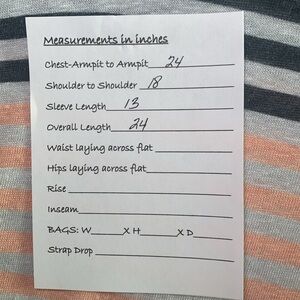 Measurements in inches
Chest-Armpit to Armpit 24
Shoulder to Shoulder 18
Sleeve Length 13
Overall Length 24
Waist laying across flat
Hips laying across flat
Rise
Inseam
BAGS: W X H X D
Strap Drop